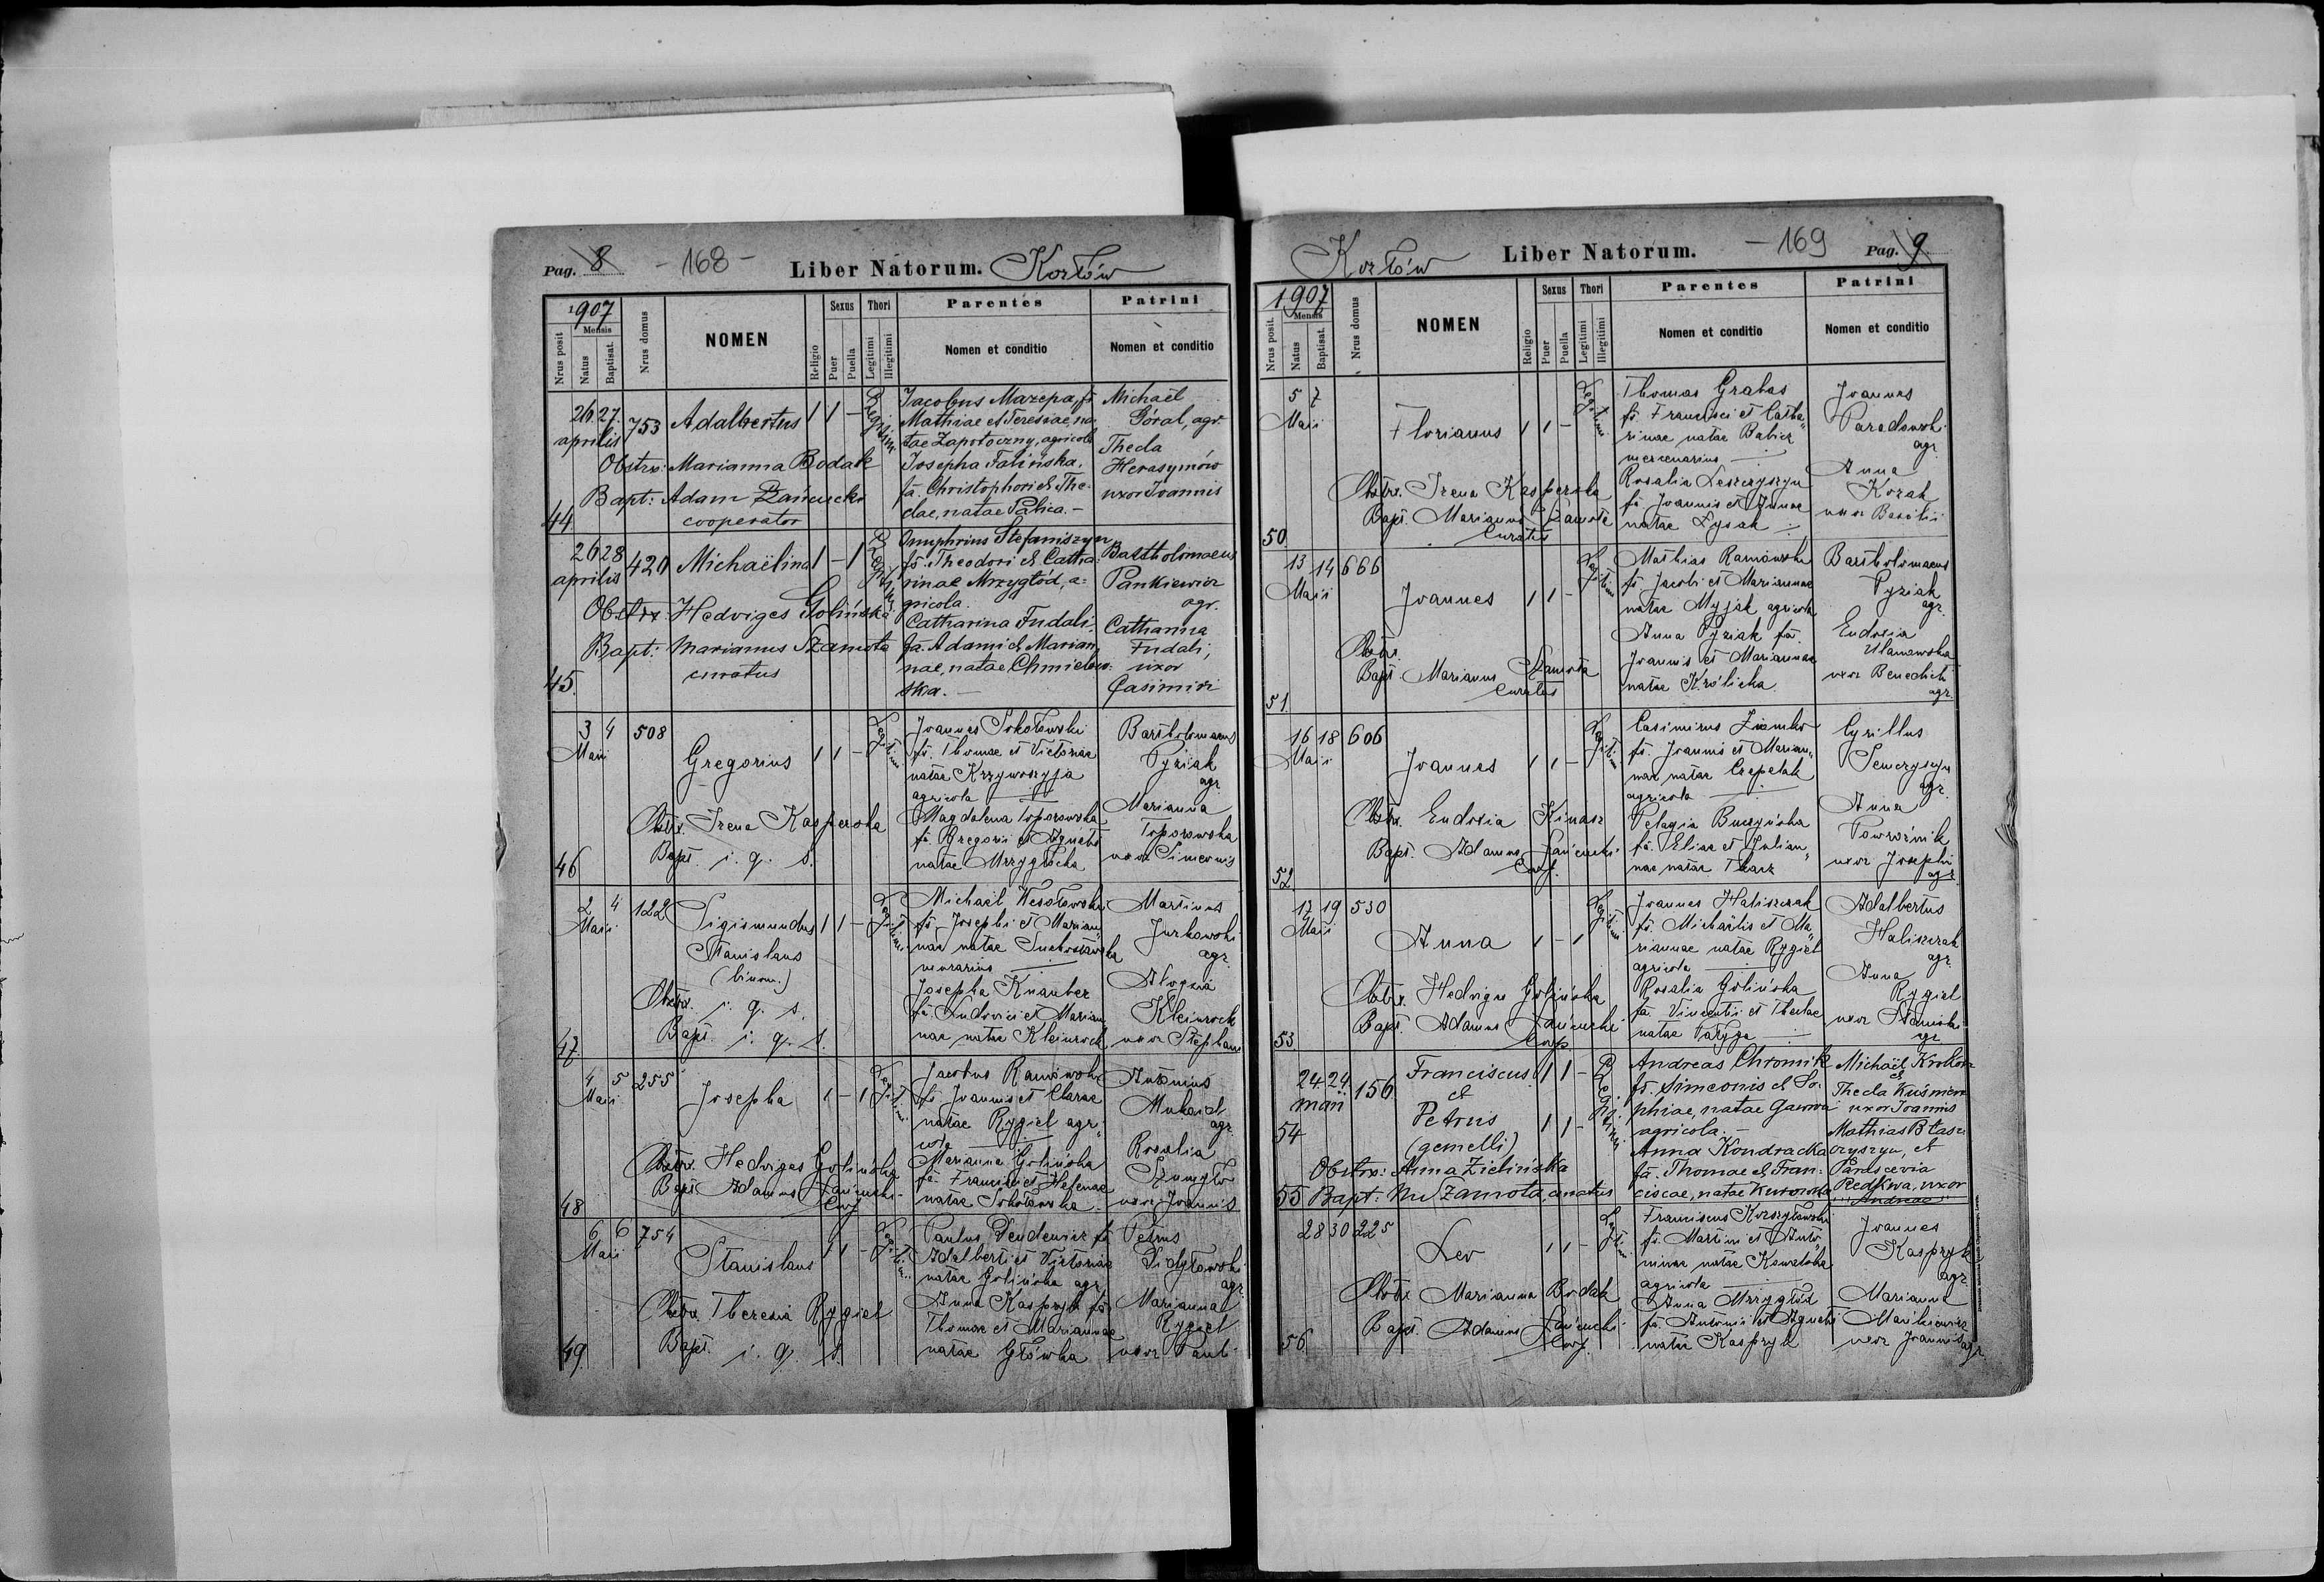 Pag. 8 - 168 - Liber Natorum. Kozłów
1907
Nrus posit
Mensis
Natus
Baptisat.
Nrus domus
NOMEN
Religio
Sexus
Puer
Puella
Thori
Legitimi
Illegitimi
Parentes
Nomen et conditio
Patrini
Nomen et conditio
26 27 753 Adalbertus 1 1 - Legitim.
aprilis
Obstrx: Marianna Bodak
Bapt: Adam Łańcucki
cooperator
44
Jacobus Mazepa, fs
Mathiae et Teresiae, na
tae Zapotoczny, agricola
Josepha Falińska,
fa. Christophori et The-
clae, natae Palica. -
Michaël
Góral, agr.
Thecla
Herasymów
uxor Joannis
26 28 420 Michaëlina 1 - 1
aprilis
Obstrx: Hedviges Golińska
Bapt: Marianus Szamota
curatus
45.
Onuphrius Stefaniszyn
fs. Theodori et Catha-
rinae Mrzygłód, a-
gricola.
Catharina Fudali,
fa. Adami et Marian
nae, natae Chmielow-
ska. -
Bartholomaeus
Pankiewicz
agr.
Catharina
Fudali,
uxor
Casimiri
3 4 508
Maii
Gregorius 1 1 -
Obstrx. Irena Kasperska
Bapt. i. q. s.
46
Joannes Sokołowski
fs. Thomae et Victoriae
natae Krzywoszyja
agricola
Magdalena Toporowska
fa. Gregorii et Agnetis
natae Mrzygłocka
Bartholomaeus
Pyziak
agr
Marianna
Toporowska
uxor Simeonis
2 4 122
Maii
Sigismundus 1 1 -
Stanislaus
(binom.)
Obstrx. i. q. s.
Bapt. i. q. s.
47.
Michaël Wesołowski
fs. Josephi et Marian
nae natae Suchorzewska
Josepha Knauber
fa. Ludovici et Marian
nae natae Kleinrock
Martinus
Jurkowski
agr.
Aloysia
Kleinrock
uxor Stephani
4 5 255
Maii
Josepha 1 - 1
Obstrx. Hedviges Golińska
Bapt. Adamus Łańcucki
Coop.
48
Jacobus Ramowski
fs. Joannis et Clarae
natae Rygiel agri
cola
Marianna Golińska
fa. Francisci et Helenae
natae Sokołowska
Antonius
agr.
Rosalia
Szmygło
uxor Joannis
6 6 754
Maii
Stanislaus 1 1 -
Obstrx. Theresia Rygiel
Bapt. i. q. s.
49
Paulus Dendewicz fs
Adalberti et Victoriae
natae Golińska agr.
Anna Kasprzyk fa
Thomae et Mariannae
natae Główka
Petrus
Didyłowski
agr.
Marianna
Rygiel
uxor Pauli
Kozłów Liber Natorum. - 169 Pag. 9
1907
Nrus posit.
Mensis
Natus
Baptisat.
Nrus domus
NOMEN
Religio
Sexus
Puer
Puella
Thori
Legitimi
Illegitimi
Parentes
Nomen et conditio
Patrini
Nomen et conditio
5 7
Maii
Florianus 1 1 -
Obstrx. Irena Kasperska
Bapt. Marianus Szamota
Curatus
50
Thomas Grabas
fs. Francisci et Catha
rinae natae Babicz
mercenarius
Rosalia Leszczyszyn
fa Joannis et Annae
natae Łysak
Joannes
Paradowski
agr.
Anna
Kozak
uxor Basilii
13 14 666
Maii
Joannes 1 1 -
Obstrx.
Bapt. Marianus Szamota
Curatus
51
Mathias Ramowski
fs Jacobi et Mariannae
natae Myjak agricola
Anna Pyziak fa.
Joannis et Mariannae
natae Królicka
Bartholomaeus
Pyziak
agr.
Eudoxia
Ułanowska
uxor Benedicti
agr.
16 18 606
Maii
Joannes 1 1 -
Obstrx. Eudoxia Kinasz
Bapt. Adamus Łańcucki
Coop.
52
Casimirus Ziemko
fs. Joannis et Marian
nae natae Czepelak
agricola
Pelagia Buczyńska
fa. Eliae et Julian
nae natae Tkacz
Cyrillus
Senczyszyn
agr.
Anna
Powroźnik
uxor Josephi
agr
17 19 530
Maii
Anna 1 - 1
Obstrx. Hedviges Golińska
Bapt. Adamus Łańcucki
Coop
53
Joannes Haliszczak
fs. Michaëlis et Ma
riannae natae Rygiel
agricola
Rosalia Golińska
fa Vincentii et Theclae
natae Patyga
Adalbertus
Haliszczak
agr.
Anna
Rygiel
uxor Stanislai
agr
24 24 156
maii
Franciscus 1 1 -
et
Petrus 1 1 -
(gemelli)
54
Obstrx: Anna Zielińska
55 Bapt: M. Szamota, curatus
Andreas Chromik
fs. Simeonis et So-
phiae, natae Gawwa
agricola. -
Anna Kondracka
fa. Thomae et Fran-
ciscae, natae Kurowska
Michaël
et
Thecla Kuśnierz
uxor Joannis
Mathias Błasz
czyszyn, et
Parascevia
Redkwa, uxor
Andreae
28 30 225
Leo 1 1 -
Obstrx Marianna Bodak
Bapt. Adamus Łańcucki
Coop.
56
Franciscus Korzyłowski
fs. Martini et Anto
ninae natae Kowalska
agricola
Anna Mrzygłód
fa. Antonii et Agnetis
natae Kasprzyk
Joannes
Kasprzyk
agr.
Marianna
Mańkiewicz
uxor Joannis agr.